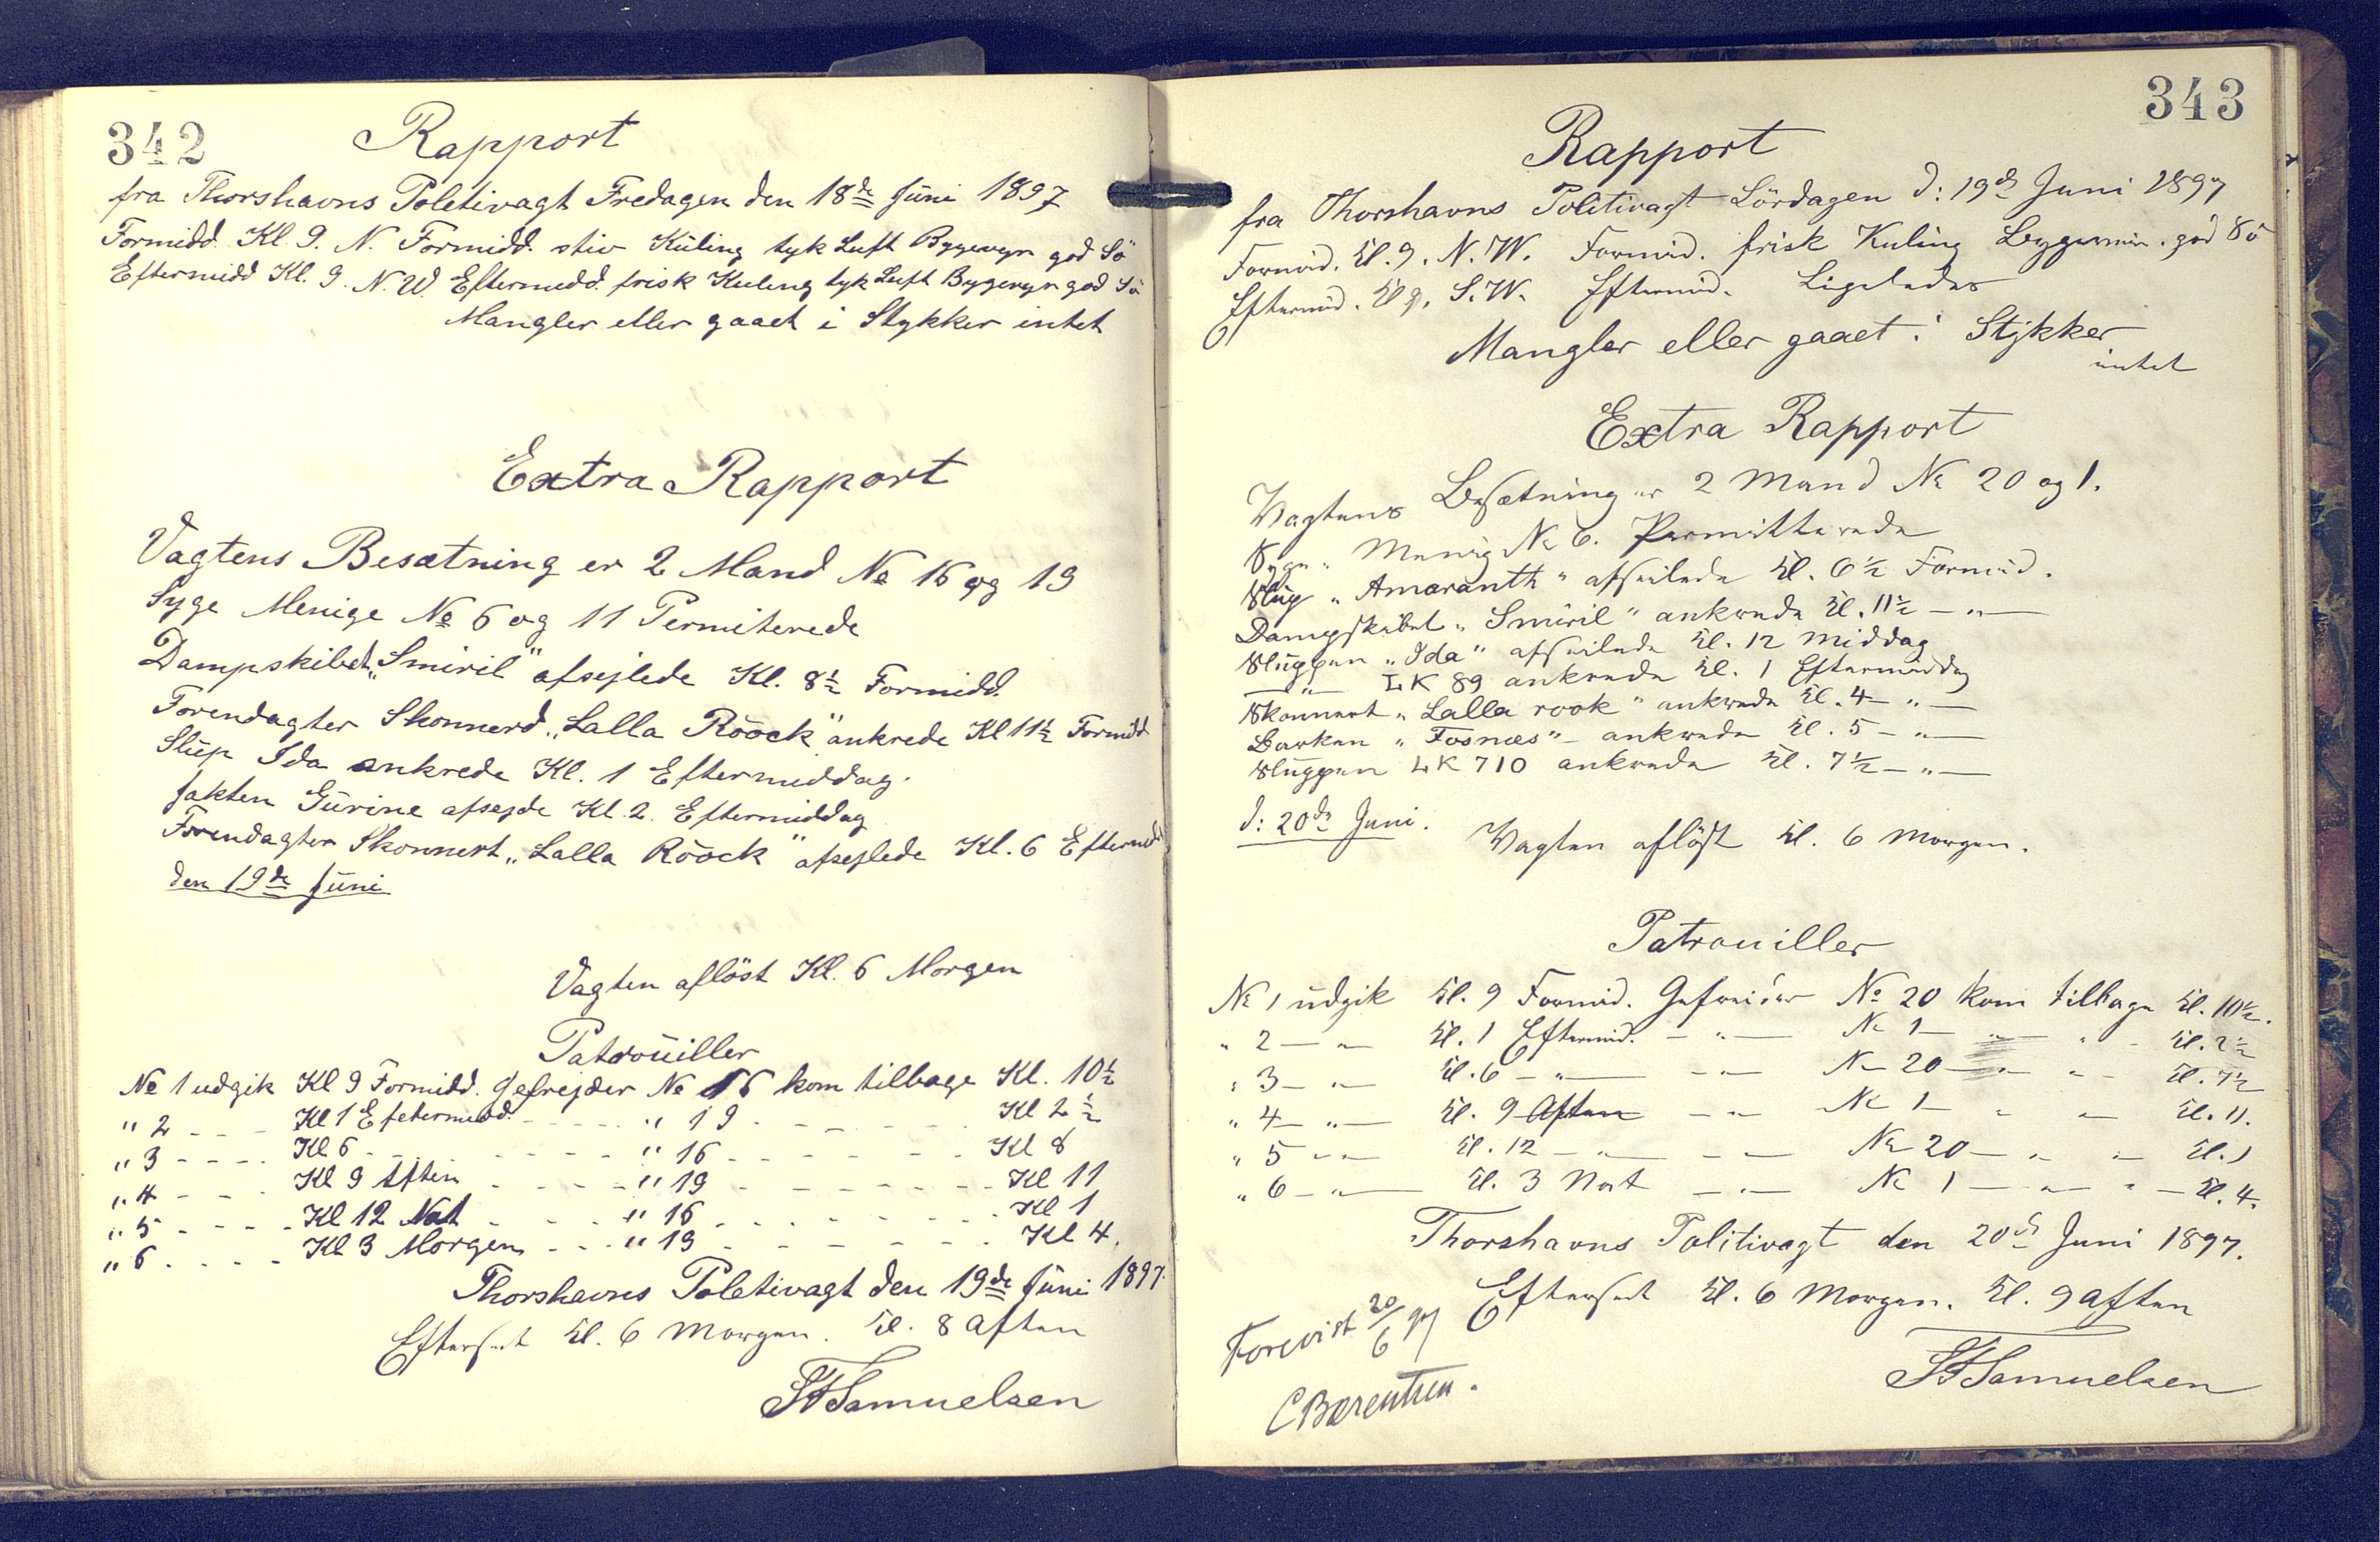 342
Rapport
fra Thorshavns Poletivagt Fredagen den 18de Juni 1897
Formidd. Kl. 9. N. Formidd. stiv Kuling tyk Luft Bygevejr god Sö
Eftermidd Kl. 9. N.W. Eftermidd. frisk Kuling tyk Luft Bygevejr god Sö
Mangler eller gaaet i Stykker intet
Extra Rapport
Vagtens Besætning er 2 Mand No 16 og 19
Syge Menige No 6 og 11 Permiterede
Dampskibet „Smiril" afsejlede Kl. 8½ Formidd.
Forendagter Skonnerd. „Lalla Roock" ankrede Kl 11½ Formidd
Slup Ida ankrede Kl. 1 Eftermiddag.
Jakten Gurine afsejde Kl. 2. Eftermiddag
Forendagter Skonnert „Lalla Roock" afsejlede Kl. 6 Eftermd
den 19de Juni
Vagten aflöst Kl. 6 Morgen
Patrouiller
No 1 udgik Kl 9 Formidd. Gefrejder No 16 kom tilbage Kl. 10½
" 2 - - - Kl 1 Eftermidd. - - - - " 19 - - - - - - Kl 2½
" 3 - - - - Kl 6 - - - - - - " 16 - - - - - - Kl 8
" 4 - - - Kl 9 Aften - - - - " 19 - - - - - - Kl 11
" 5 - - - - Kl 12 Nat - - - " 16 - - - - - - Kl 1
" 6 - - - - Kl 3 Morgen - - - " 19 - - - - - Kl 4.
Thorshavns Poletivagt den 19de Juni 1897.
Efterseet Kl. 6 Morgen. Kl. 8 Aften
Samuelsen
343
Rapport
fra Thorshavns Politivagt Lördagen d: 19de Juni 1897
Formid. Kl. 9. N.W. Formid. frisk Kuling Bygevejr. god Sö
Eftermid. Kl 9. S.W. Eftermid. Ligeledes
Mangler eller gaaet i Stykker
intet
Extra Rapport
Vagtens Besætning er 2 Mand No 20 og 1.
Syge " Menig No 6. Permitterede
Slup „Amaranth" afseilede Kl. 6½ Formid.
Dampskibet „Smiril" ankrede Kl. 11½ — " —
Sluppen „Ida" afseilede Kl. 12 Middag
— " — LK 89 ankrede Kl. 1 Eftermiddag
Skonnert „Lalla rook" ankrede Kl. 4 — " —
Barken „Fosnæs" - ankrede Kl. 5 — " —
Sluppen LK 710 ankrede Kl. 7½ — " —
d: 20de Juni. Vagten aflöst Kl. 6 Morgen.
Patrouiller
No 1 udgik Kl. 9 Formid. Gefreider No 20 kom tilbage Kl. 10½.
" 2 — " Kl. 1 Eftermid. — " — No 1 — " " - Kl. 2½
" 3 — " Kl. 6 — " — — " No 20 — " " - Kl. 7½
" 4 — " — Kl. 9 Aften — " No 1 — " " Kl. 11.
" 5 — " Kl. 12 — " — — " — No 20 — " " Kl. 1
" 6 — " — Kl. 3 Nat — " — No 1 — " " — Kl. 4.
Thorshavns Politivagt den 20de Juni 1897.
Efterseet Kl. 6 Morgen. Kl. 9 Aften
Forevist 20/6 97
Samuelsen
C Bærentsen.